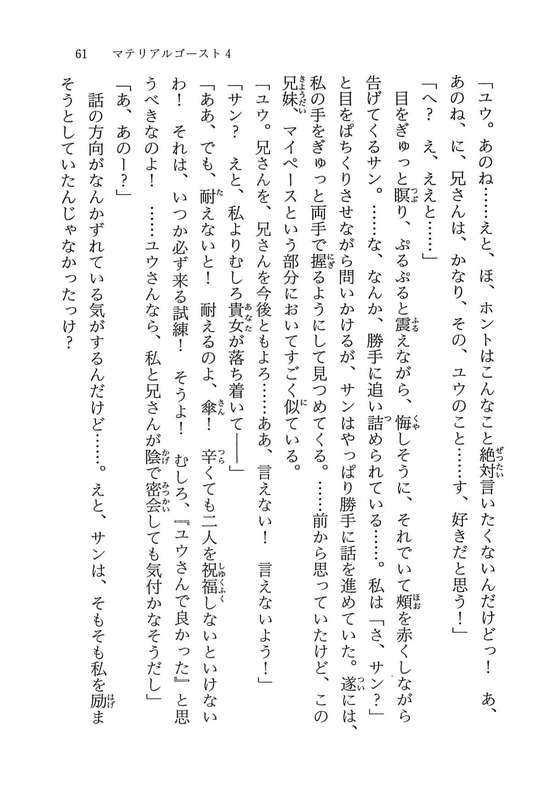 61　マテリアルゴースト4
「ユウ。あのね……えと、ほ、ホントはこんなこと絶対言いたくないんだけどっ！　あ、
あのね、に、兄さんは、かなり、その、ユウのこと……す、好きだと思う！」
「へ？　え、ええと……」
　目をぎゅっと瞑り、ぷるぷると震えながら、悔しそうに、それでいて頬を赤くしながら
告げてくるサン。……な、なんか、勝手に追い詰められている……。私は「さ、サン？」
と目をぱちくりさせながら問いかけるが、サンはやっぱり勝手に話を進めていた。遂には、
私の手をぎゅっと両手で握るようにして見つめてくる。……前から思っていたけど、この
兄妹、マイペースという部分においてすごく似ている。
「ユウ。兄さんを、兄さんを今後ともよろ……ああ、言えない！　言えないよう！」
「サン？　えと、私よりむしろ貴女が落ち着いて――」
「ああ、でも、耐えないと！　耐えるのよ、傘！　辛くても二人を祝福しないといけない
わ！　それは、いつか必ず来る試練！　そうよ！　むしろ、『ユウさんで良かった』と思
うべきなのよ！　……ユウさんなら、私と兄さんが陰で密会しても気付かなそうだし」
「あ、あのー？」
　話の方向がなんかずれている気がするんだけど……。えと、サンは、そもそも私を励ま
そうとしていたんじゃなかったっけ？